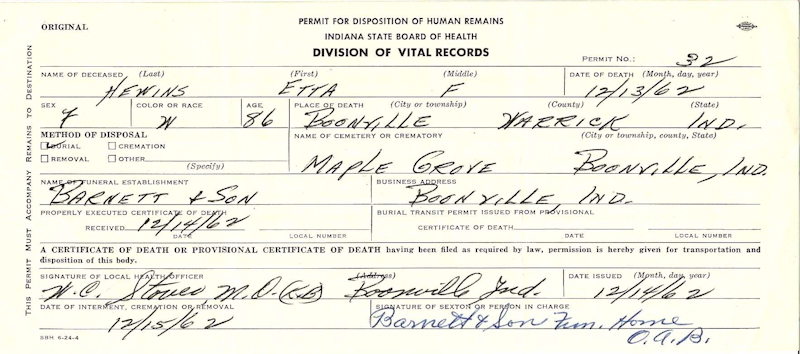 ORIGINAL
PERMIT FOR DISPOSITION OF HUMAN REMAINS
INDIANA STATE BOARD OF HEALTH
DIVISION OF VITAL RECORDS
PERMIT NO.: 32
THIS PERMIT MUST ACCOMPANY REMAINS TO DESTINATION
NAME OF DECEASED (Last) (First) (Middle) DATE OF DEATH (Month, day, year)
HEWINS ETTA F 12/13/62
SEX COLOR OR RACE AGE PLACE OF DEATH (City or township) (County) (State)
F W 86 BOONVILLE WARRICK IND.
METHOD OF DISPOSAL NAME OF CEMETERY OR CREMATORY (City or township, county, State)
BURIAL CREMATION
REMOVAL OTHER
(Specify)
MAPLE GROVE BOONVILLE, IND.
NAME OF FUNERAL ESTABLISHMENT BUSINESS ADDRESS
BARNETT & SON BOONVILLE, IND.
PROPERLY EXECUTED CERTIFICATE OF DEATH BURIAL TRANSIT PERMIT ISSUED FROM PROVISIONAL
RECEIVED 12/14/62 CERTIFICATE OF DEATH
DATE LOCAL NUMBER DATE LOCAL NUMBER
A CERTIFICATE OF DEATH OR PROVISIONAL CERTIFICATE OF DEATH having been filed as required by law, permission is hereby given for transportation and
disposition of this body.
SIGNATURE OF LOCAL HEALTH OFFICER (Address) DATE ISSUED (Month, day, year)
W.C. Stover, M.D. (KB) Boonville Ind. 12/14/62
DATE OF INTERMENT, CREMATION OR REMOVAL SIGNATURE OF SEXTON OR PERSON IN CHARGE
12/15/62 Barnett & Son Fun. Home
O.A.B.
SBH 6-24-4